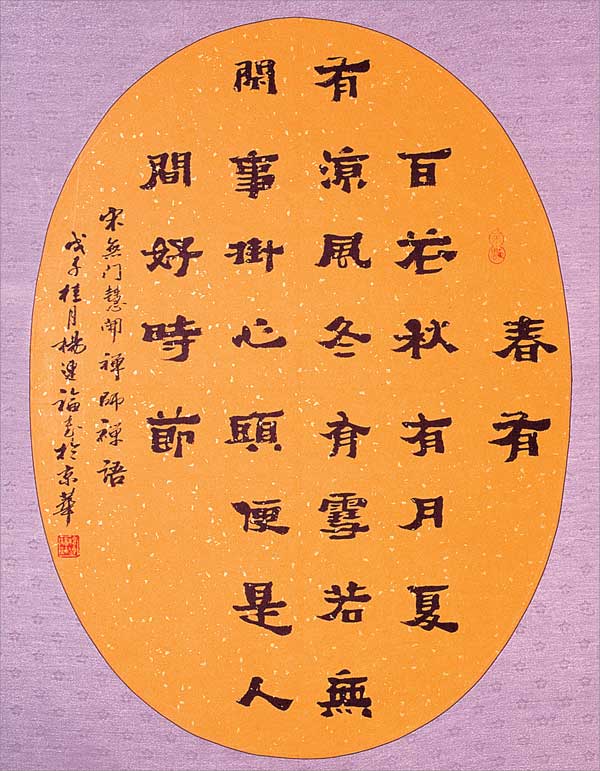 春有
百花秋有月夏
有涼風冬有雪若無
閑事掛心頭便是人
間好時節
宋無门慧開禪師禪語
戊子桂月楊福书於京華